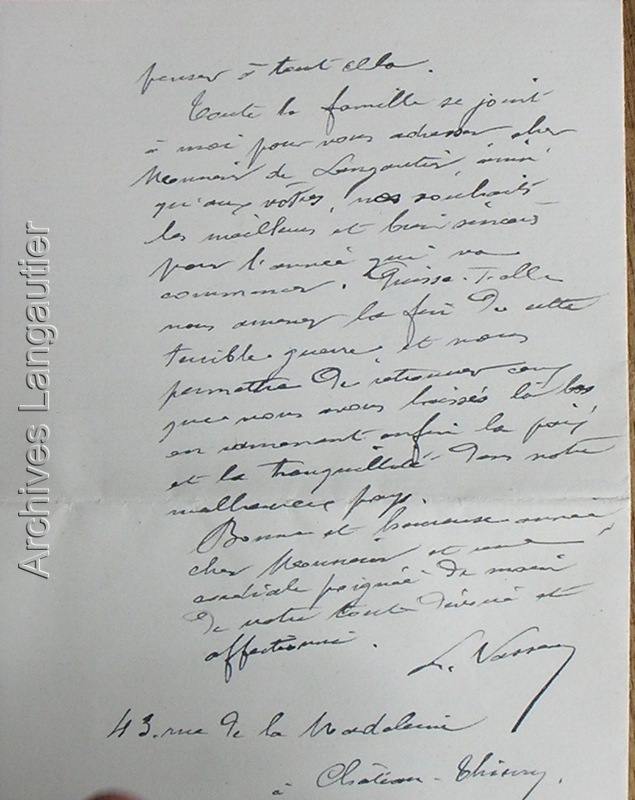 penser à tout cela.
Toute la famille se joint
à moi pour vous adresser cher
Monsieur de Langautier, ainsi
qu'aux vôtres, nos souhaits
les meilleurs et bien sincères
pour l'année qui va
commencer. Puisse-t-elle
nous amener la fin de cette
terrible guerre et nous
permettre de retrouver ceux
que nous avons laissés là bas
en ramenant enfin la paix
et la tranquillité dans notre
malheureux pays.
Bonne et heureuse année
cher Monsieur et une
cordiale poignée de main
de votre tout dévoué et
affectionné.
L.
43. rue de la Madeleine
à Château-Thierry.
Archives Langautier